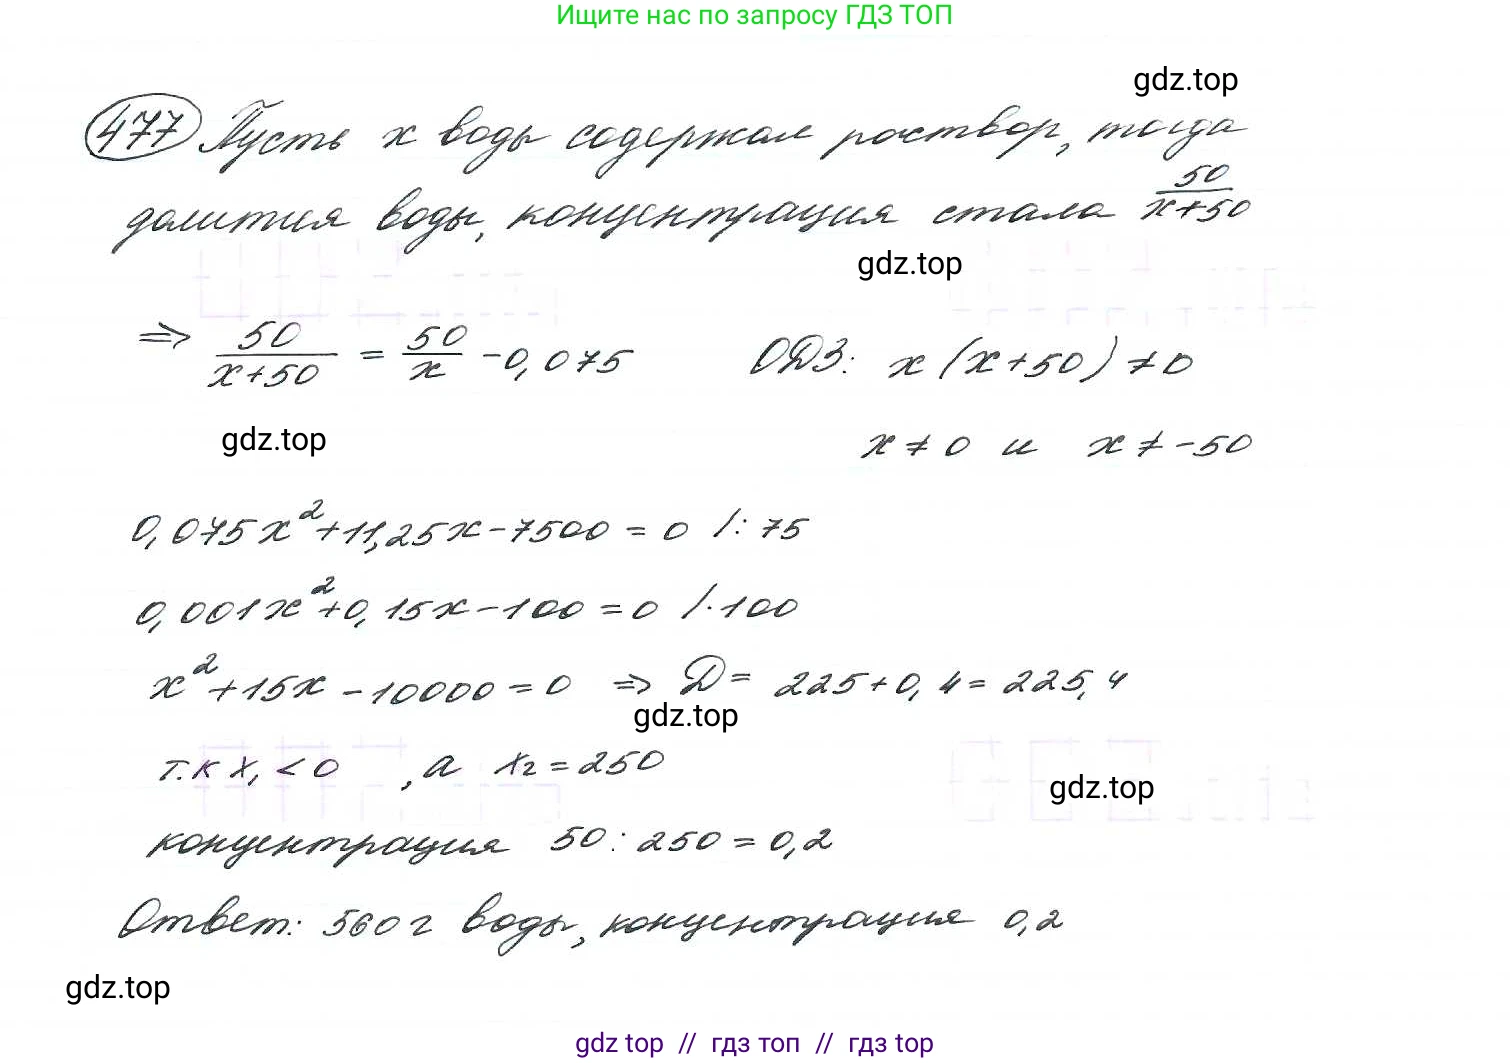 Ищите нас по запросу ГДЗ ТОП
gdz.top
477 Пусть x воды содержал раствор, тогда
долития воды, концентрация стала 50/(x+50)
gdz.top
⇒ 50/(x+50) = 50/x - 0,075 ОДЗ: x(x+50) ≠ 0
gdz.top
x ≠ 0 и x ≠ -50
0,075x² + 11,25x - 7500 = 0 /: 75
0,001x² + 0,15x - 100 = 0 /· 100
x² + 15x - 10000 = 0 ⇒ D = 225 + 0,4 = 225,4
gdz.top
т.к x₁ < 0 , а x₂ = 250
gdz.top
концентрация 50 : 250 = 0,2
Ответ: 560 г воды, концентрация 0,2
gdz.top
gdz top // гдз топ // gdz top